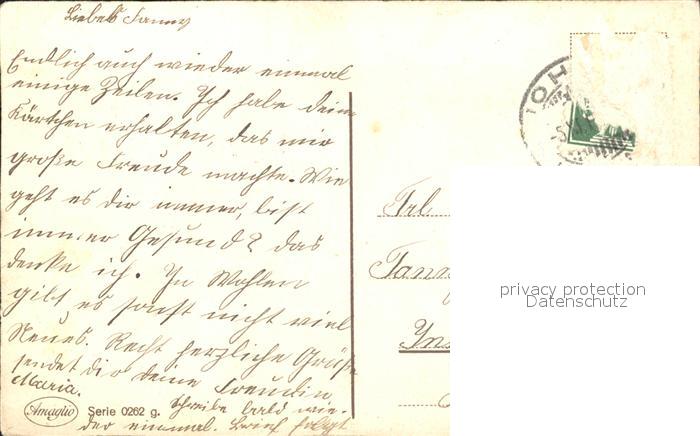 Liebes Fanny
Endlich auch wieder einmal
einige Zeilen. Ich habe dein
Kärtchen erhalten, das mir
große Freude machte. Wie
geht es dir immer, bist
immer Gesund? das
denke ich. In Wohlen
gibt es sonst nicht viel
Neues. Recht herzliche Grüße
sendet dir deine Freundin
Maria.
Schreibe bald wie-
der einmal. Brief folgt
Amaglio Serie 0262 g.
Frl.
privacy protection
Datenschutz